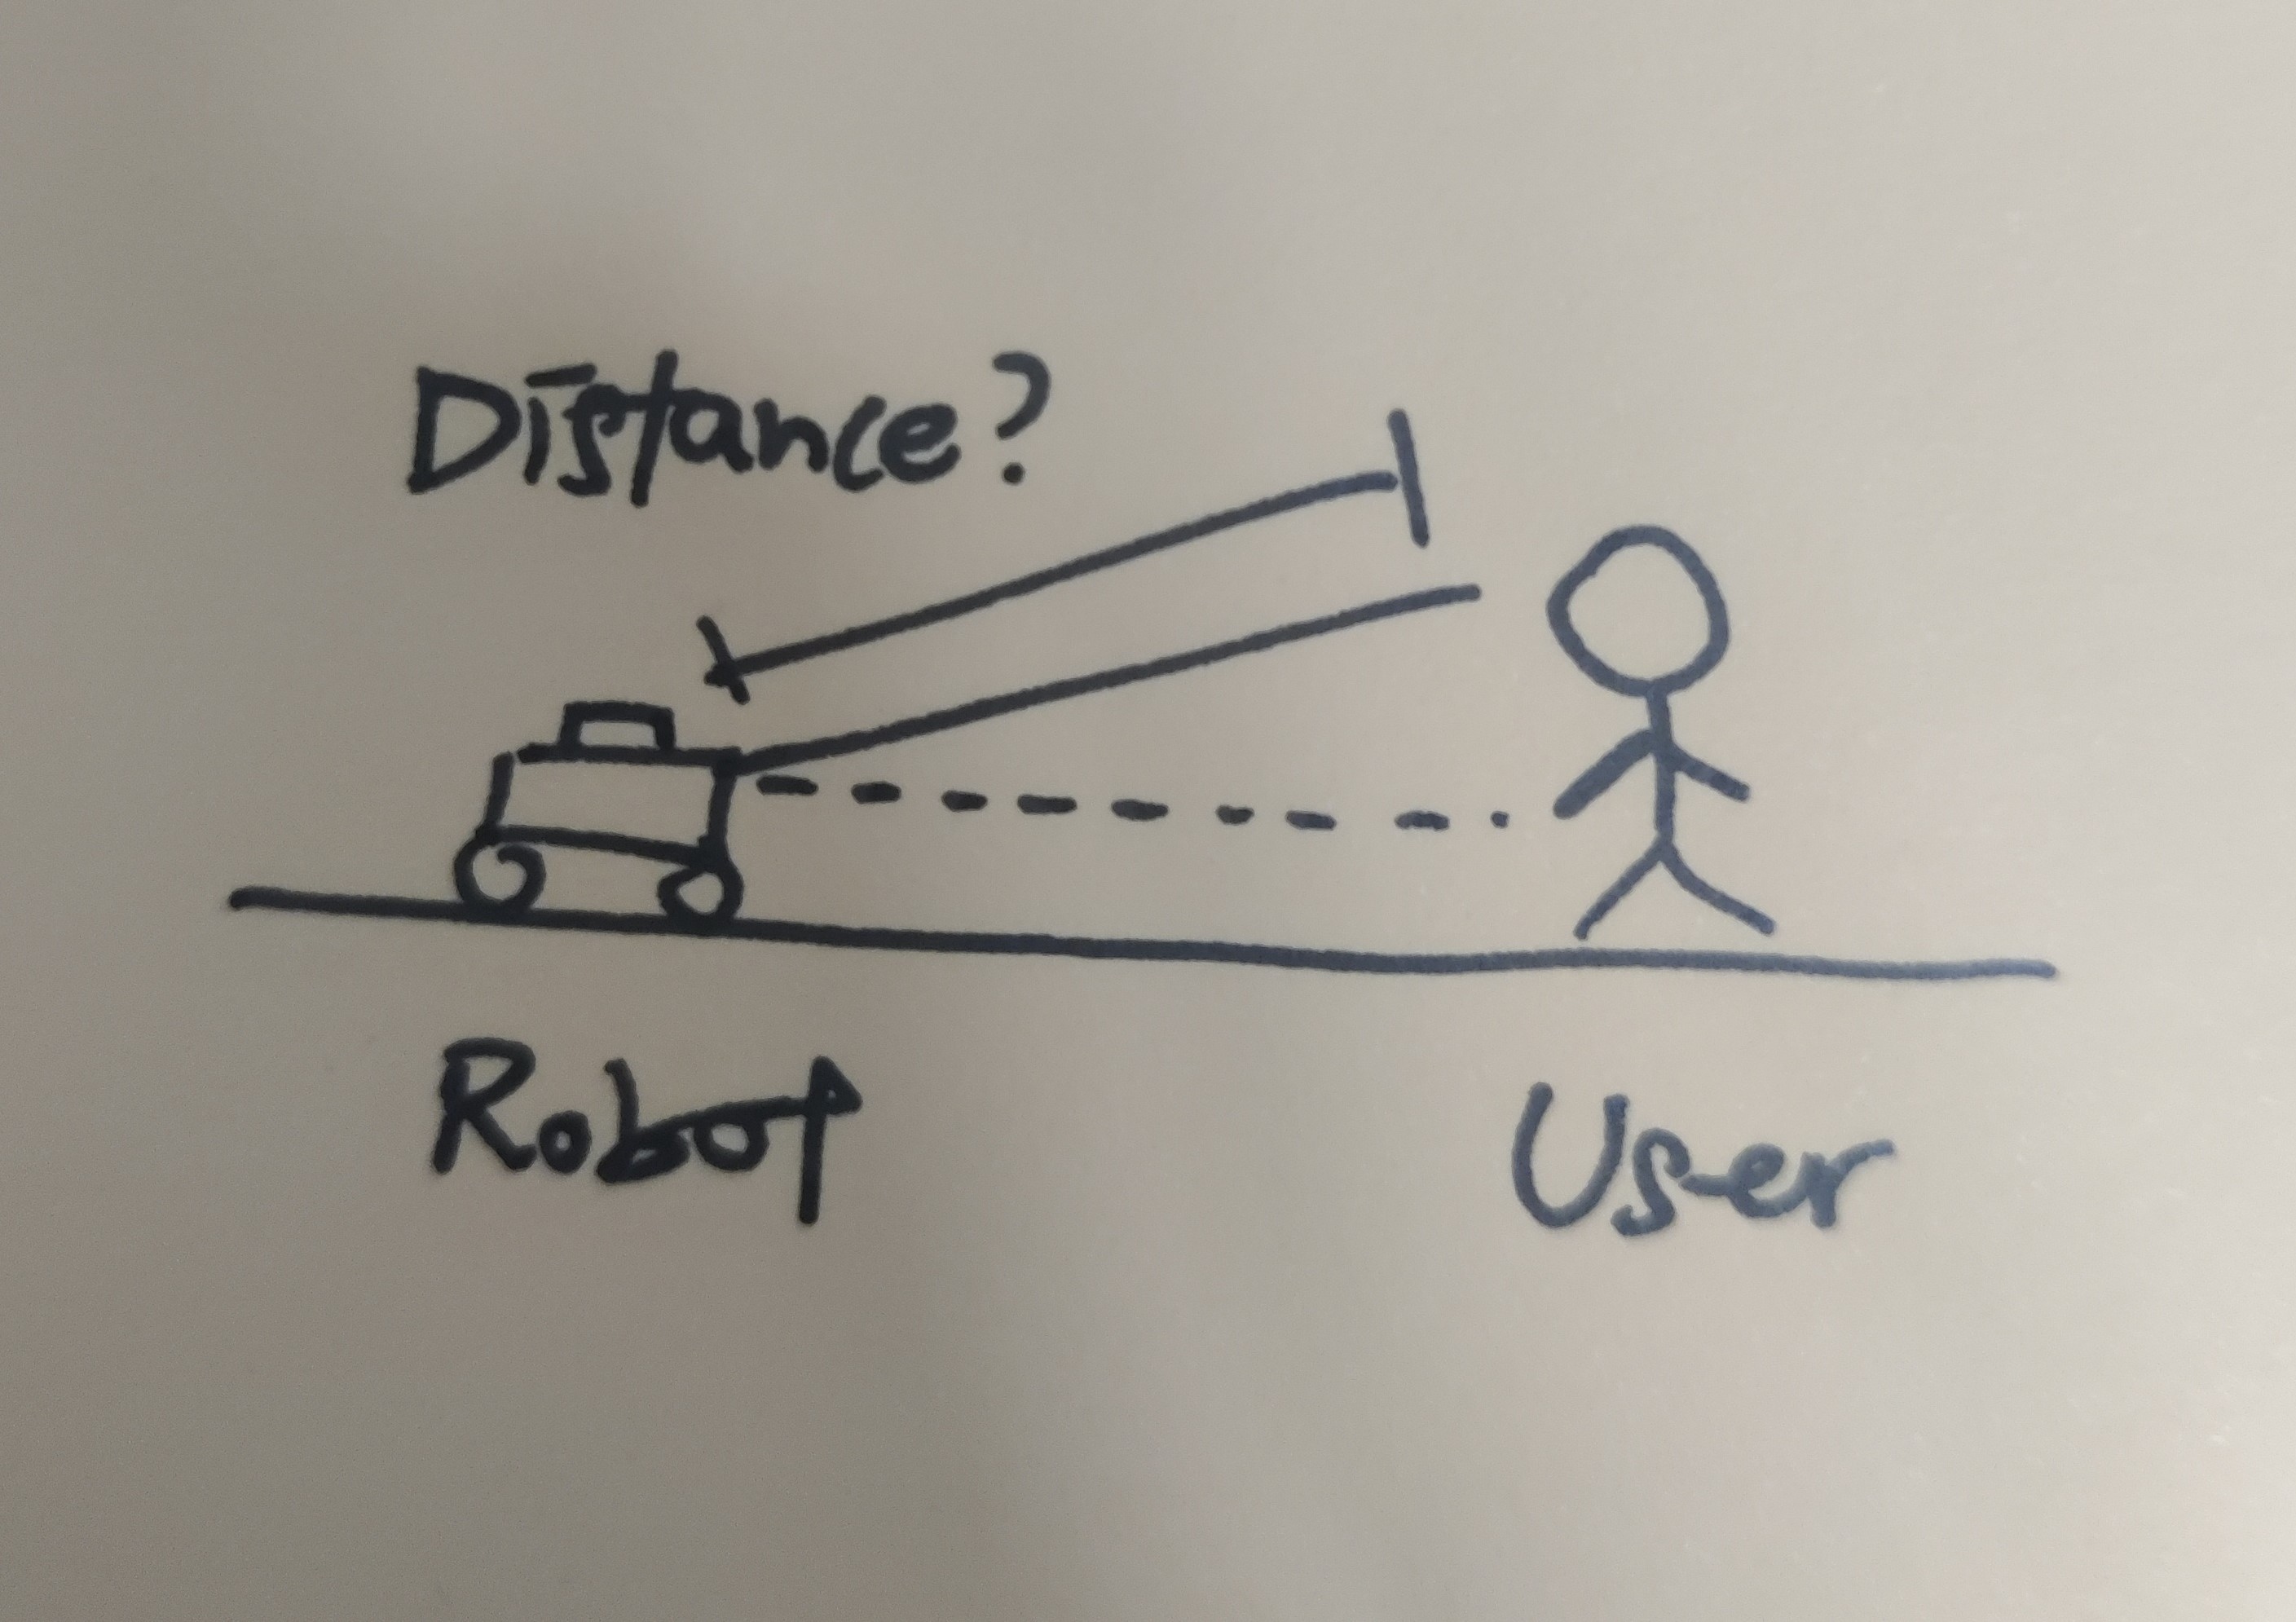 Distance?
Robot
User